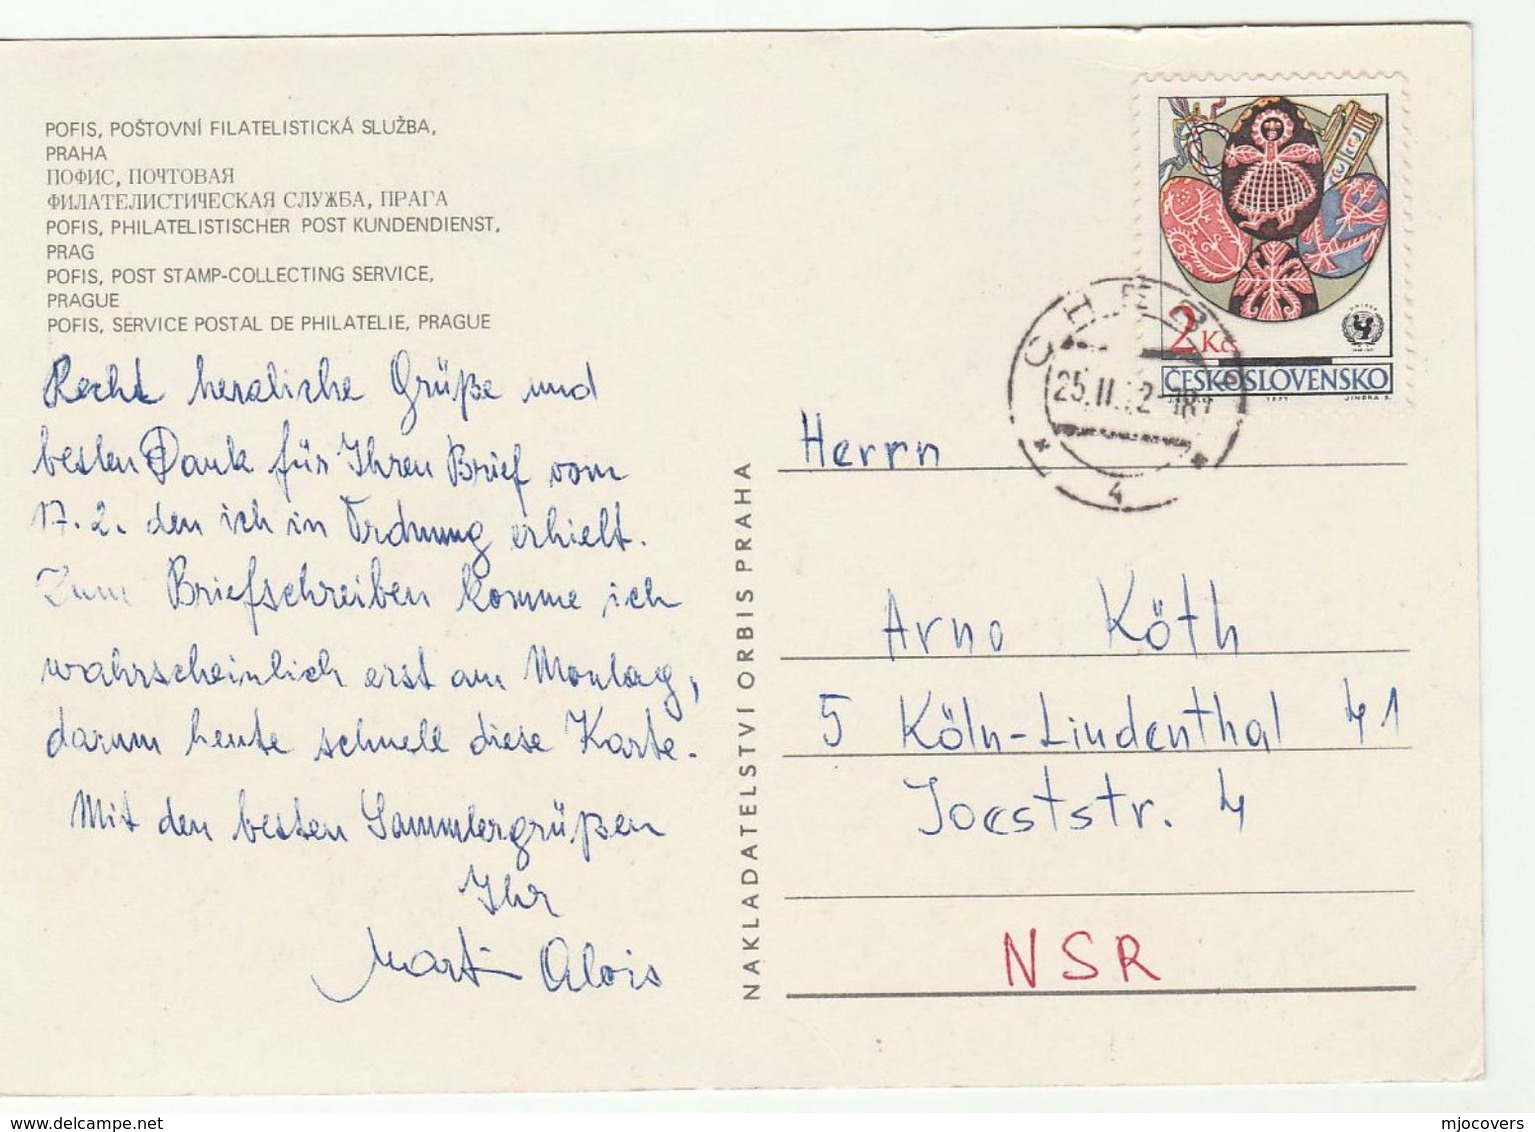 POFIS, POŠTOVNÍ FILATELISTICKÁ SLUŽBA,
PRAHA
ПОФИС, ПОЧТОВАЯ
ФИЛАТЕЛИСТИЧЕСКАЯ СЛУЖБА, ПРАГА
POFIS, PHILATELISTISCHER POST KUNDENDIENST,
PRAG
POFIS, POST STAMP-COLLECTING SERVICE,
PRAGUE
POFIS, SERVICE POSTAL DE PHILATELIE, PRAGUE
Recht herzliche Grüße und
besten Dank für Ihren Brief vom
17.2. den ich in Ordnung erhielt.
Zum Briefschreiben komme ich
wahrscheinlich erst am Montag,
darum heute schnell diese Karte.
Mit den besten Sammlergrüßen
Ihr
Martin Alois
NAKLADATELSTVI ORBIS PRAHA
2 Kčs
ČESKOSLOVENSKO
1971 JINDRA S.
CHEB
25.II.72-18
4
Herrn
Arno Köth
5 Köln-Lindenthal 41
Joeststr. 4
NSR
mjocovers